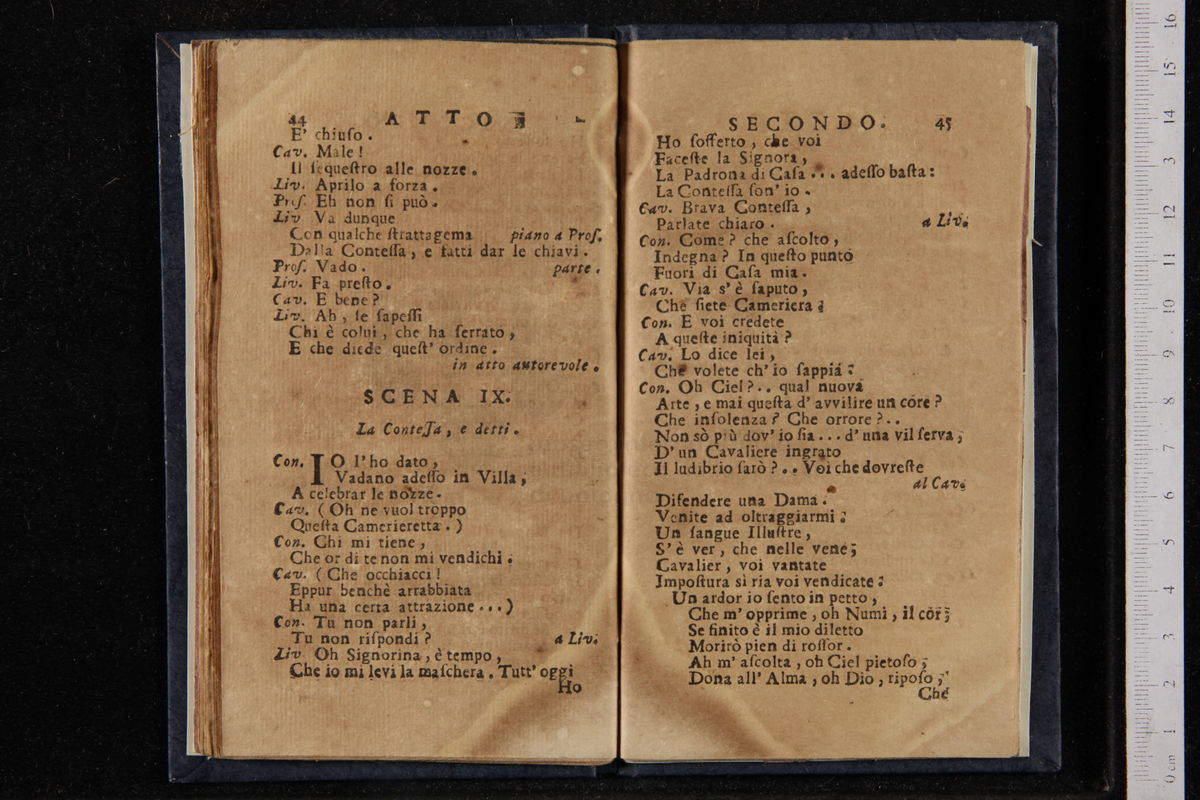 44 ATTO
E' chiuſo.
Cav. Male!
Il ſequeſtro alle nozze.
Liv. Aprilo a forza.
Proſ. Eh non ſi può.
Liv. Va dunque
Con qualche ſtrattagema piano a Proſ.
Dalla Conteſſa, e fatti dar le chiavi.
Proſ. Vado. parte.
Liv. Fa preſto.
Cav. E bene?
Liv. Ah, ſe ſapeſſi
Chi è colui, che ha ſerrato,
E che diede queſt' ordine.
in atto autorevole.
SCENA IX.
La Conteſſa, e detti.
Con. IO l'ho dato,
Vadano adeſſo in Villa,
A celebrar le nozze.
Cav. (Oh ne vuol troppo
Queſta Camerieretta.)
Con. Chi mi tiene,
Che or di te non mi vendichi.
Cav. (Che occhiacci!
Eppur benchè arrabbiata
Ha una certa attrazione...)
Con. Tu non parli,
Tu non riſpondi? a Liv.
Liv. Oh Signorina, è tempo,
Che io mi levi la maſchera. Tutt' oggi
Ho
SECONDO. 45
Ho ſofferto, che voi
Faceſte la Signora,
La Padrona di Caſa... adeſſo baſta:
La Conteſſa ſon' io.
Cav. Brava Conteſſa,
Parlate chiaro. a Liv.
Con. Come? che aſcolto,
Indegna? In queſto punto
Fuori di Caſa mia.
Cav. Via s' è ſaputo,
Che ſiete Cameriera.
Con. E voi credete
A queſte iniquità?
Cav. Lo dice lei,
Che volete ch' io ſappia?
Con. Oh Ciel?.. qual nuova
Arte, e mai queſta d' avvilire un core?
Che inſolenza? Che orrore?..
Non sò più dov' io ſia... d' una vil ſerva,
D' un Cavaliere ingrato
Il ludibrio ſarò?.. Voi che dovreſte
al Cav.
Difendere una Dama.
Venite ad oltraggiarmi:
Un ſangue Illuſtre,
S' è ver, che nelle vene,
Cavalier, voi vantate
Impoſtura sì ria voi vendicate.
Un ardor io ſento in petto,
Che m' opprime, oh Numi, il cor;
Se finito è il mio diletto
Morirò pien di roſſor.
Ah m' aſcolta, oh Ciel pietoſo,
Dona all' Alma, oh Dio, ripoſo,
Che
0 cm 1 2 3 4 5 6 7 8 9 10 11 12 13 14 15 16